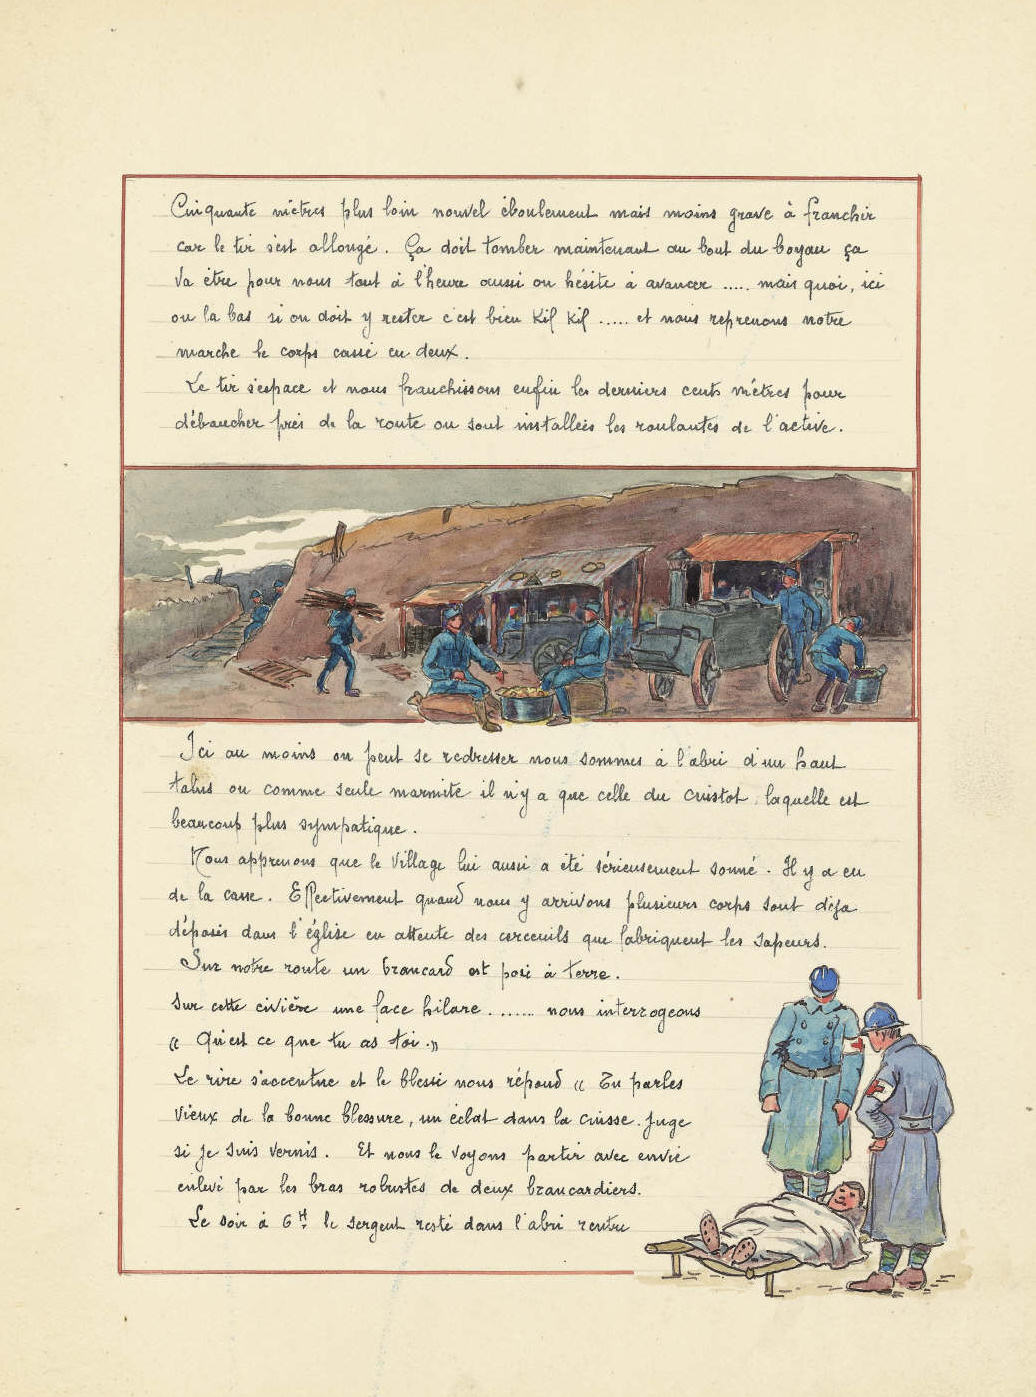 Cinquante mètres plus loin nouvel éboulement mais moins grave à franchir
car le tir s'est allongé. Ça doit tomber maintenant au bout du boyau ça
va être pour nous tout à l'heure aussi on hésite à avancer ..... mais quoi, ici
ou la bas si on doit y rester c'est bien Kif Kif ..... et nous reprenons notre
marche le corps cassé en deux.
Le tir s'espace et nous franchissons enfin les derniers cents mètres pour
déboucher près de la route ou sont installées les roulantes de l'active.
Ici au moins on peut se redresser nous sommes à l'abri d'un haut
talus ou comme seule marmite il n'y a que celle du cuistot, laquelle est
beaucoup plus sympatique.
Nous apprenons que le village lui aussi a été sérieusement sonné. Il y a eu
de la casse. Effectivement quand nous y arrivons plusieurs corps sont déja
déposés dans l'église en attente des cerceuils que fabriquent les sapeurs.
Sur notre route un brancard est posé à terre.
Sur cette civière une face hilare. ...... nous interrogeons
« Qu'est ce que tu as toi. »
Le rire s'accentue et le blessé nous répond « Tu parles
vieux de la bonne blessure, un éclat dans la cuisse. Juge
si je suis vernis. Et nous le voyons partir avec envie
enlevé par les bras robustes de deux brancardiers.
Le soir à 6H. le sergent resté dans l'abri rentre